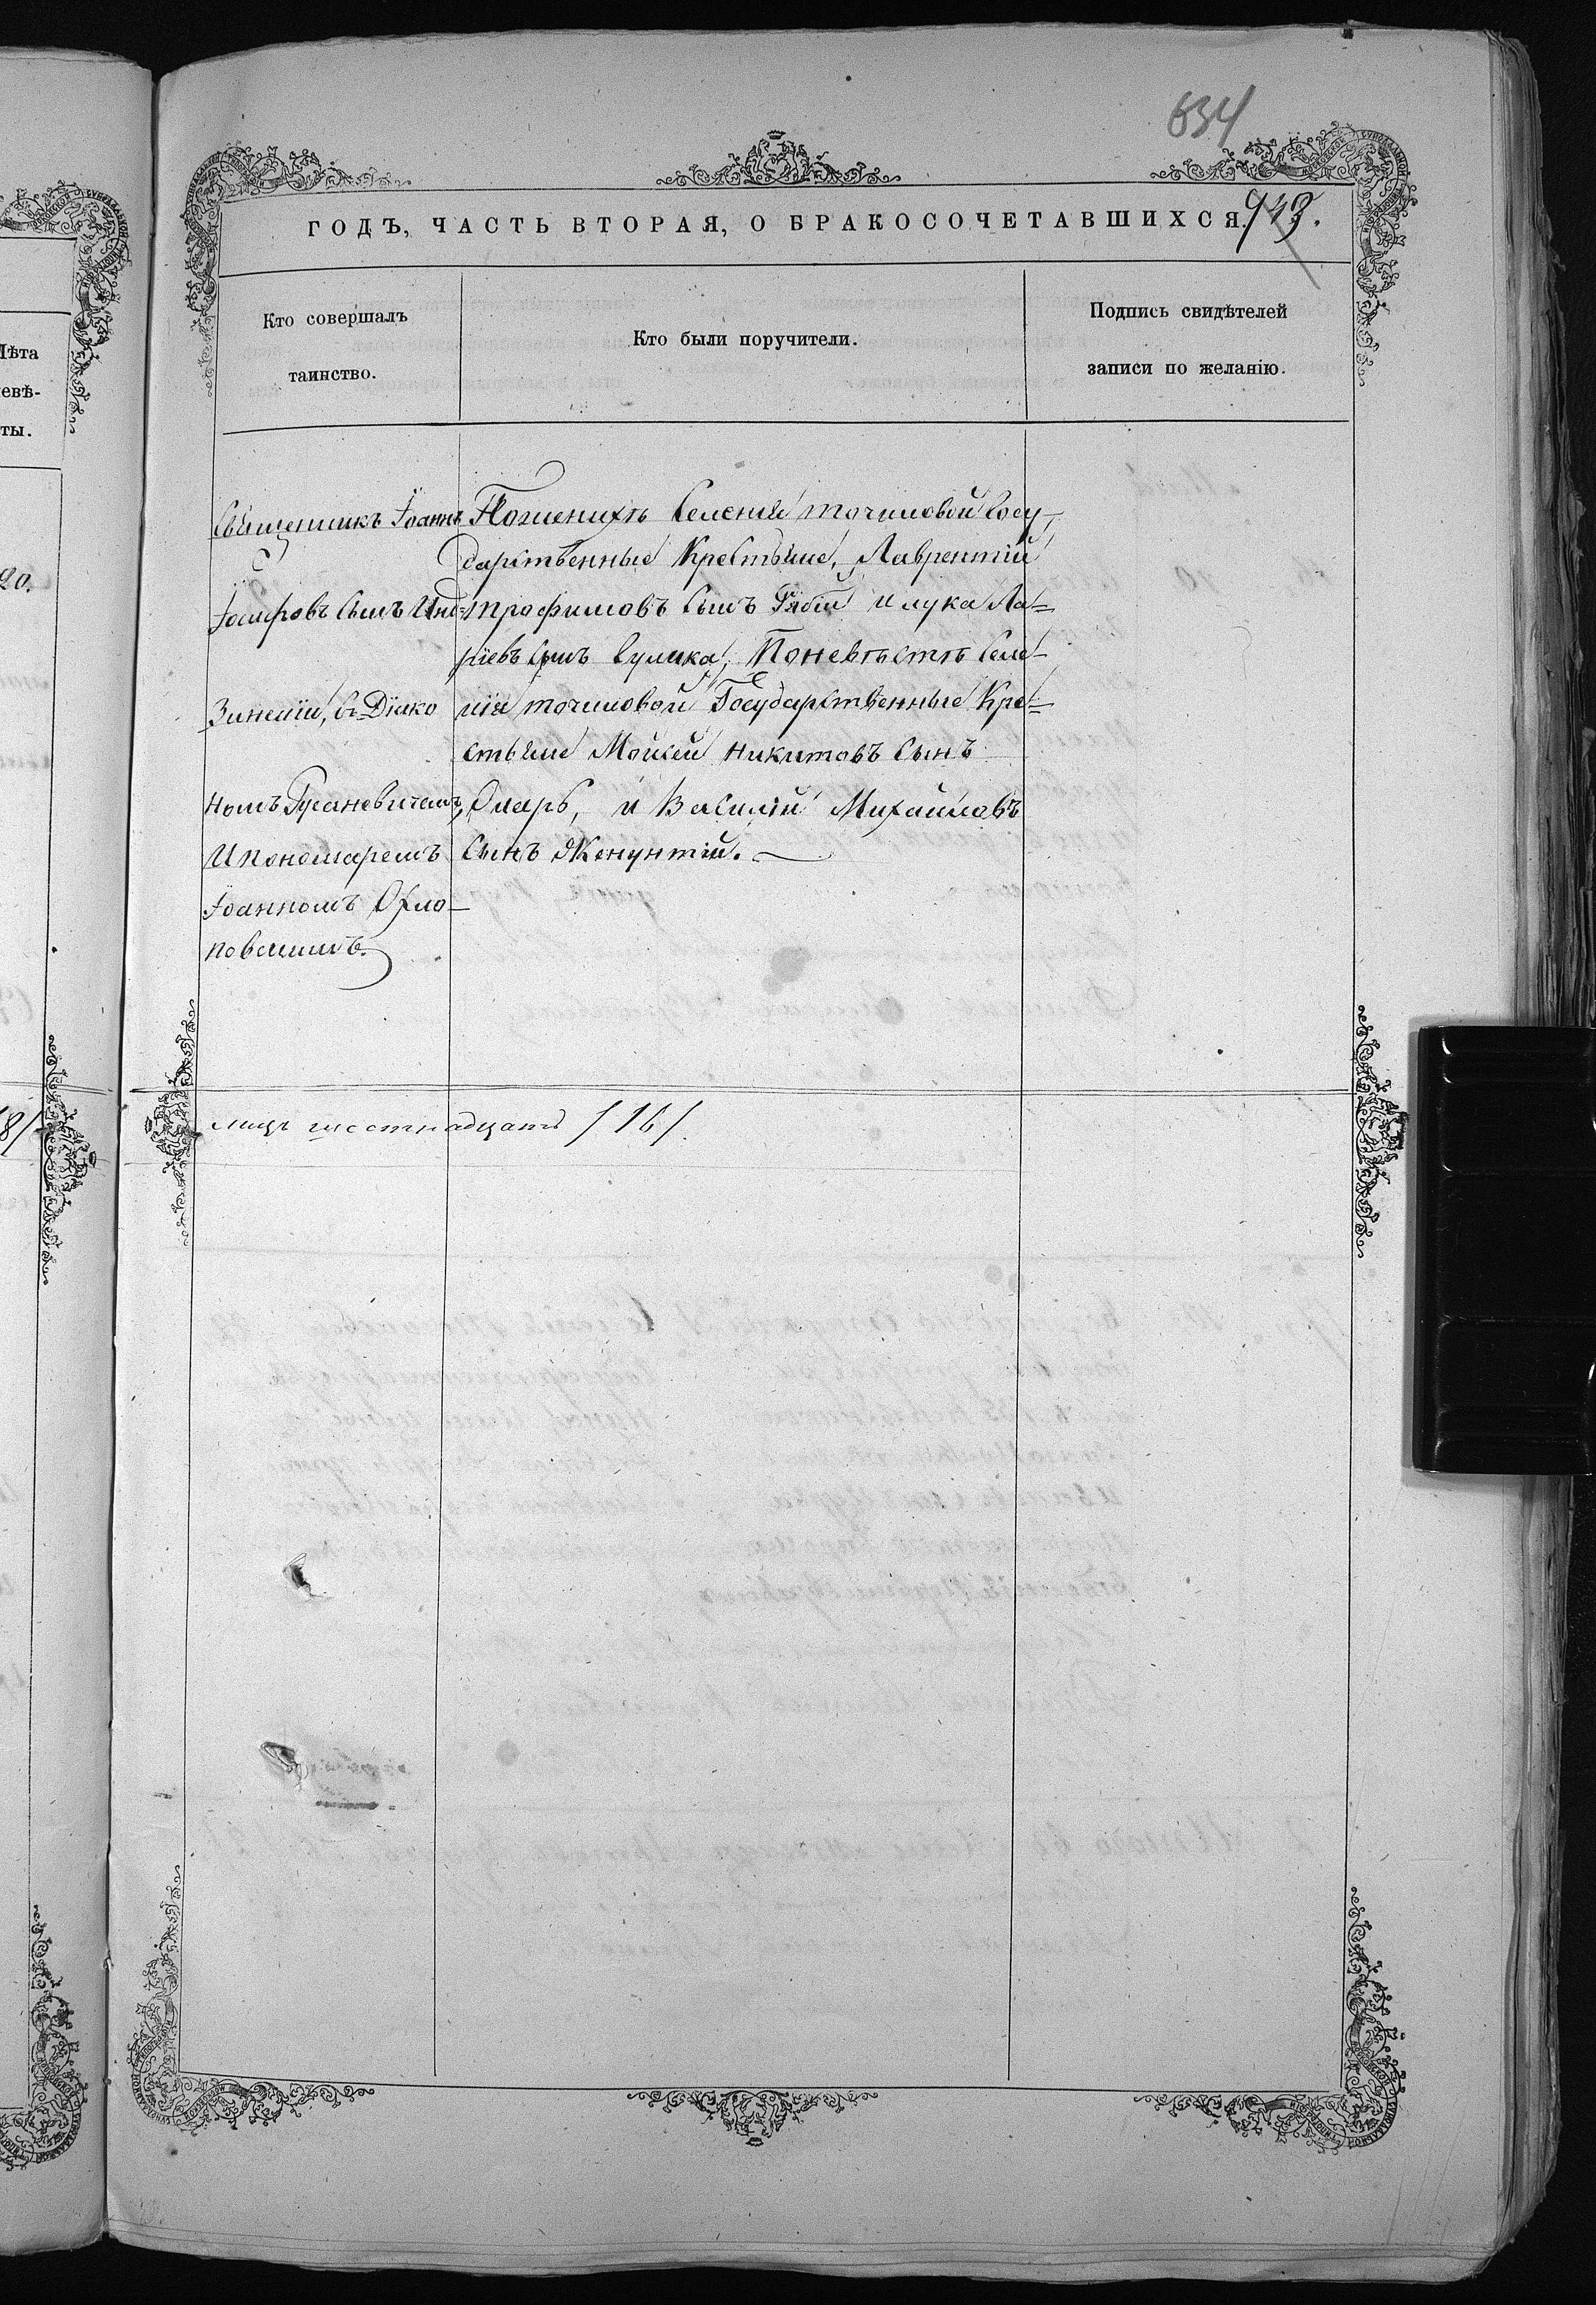 634
ГОДЪ, ЧАСТЬ ВТОРАЯ, О БРАКОСОЧЕТАВШИХСЯ. 143.
Лѣта
невѣ-
ты.
20.
18/
Кто совершалъ
таинство.
Кто были поручители.
Подпись свидѣтелей
записи по желанію.
Священникъ Іоаннъ
Іосифовъ Сынъ
Зинелій, съ Діако
номъ Гусановичемъ,
И пономаремъ
Іоанномъ Орло
повскимъ.
Поженихѣ Селенія точиловой Госу-
дарственные Крестьяне, Лаврентій
трофимовъ Сынъ Рябій и лука Ла=
ріевъ Сынъ Сулика, Поневѣстѣ Селе-
нія точиловой Государственные Кре=
стьяне Мойсей Никитовъ Сынъ
Оларь, и Василій Михайловъ
Сынъ Женунтій.
лицъ шестнадцать /16/.